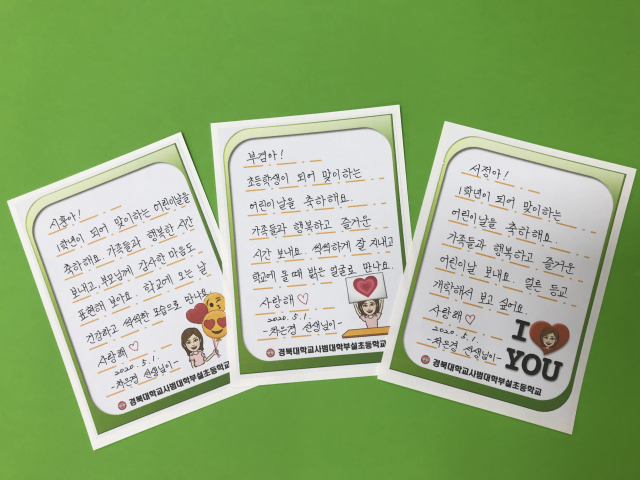 시훈아!
1학년이 되어 맞이하는 어린이날을
축하해요. 가족들과 행복한 시간
보내고, 부모님께 감사한 마음도
표현해 보아요. 학교에 오는 날
건강하고 씩씩한 모습으로 만나요.
사랑해♡
2020. 5. 1.
-차은경 선생님이-
경북대학교사범대학부설초등학교
부겸아!
초등학생이 되어 맞이하는
어린이날을 축하해요.
가족들과 행복하고 즐거운
시간 보내요. 씩씩하게 잘 지내고
학교에 올 때 밝은 얼굴로 만나요.
사랑해♡
2020. 5. 1.
-차은경 선생님이-
경북대학교사범대학부설초등학교
서정아!
1학년이 되어 맞이하는
어린이날을 축하해요.
가족들과 행복하고 즐거운
어린이날 보내요. 얼른 등교
개학해서 보고 싶어요.
사랑해♡
2020. 5. 1.
-차은경 선생님이-
I
YOU
경북대학교사범대학부설초등학교